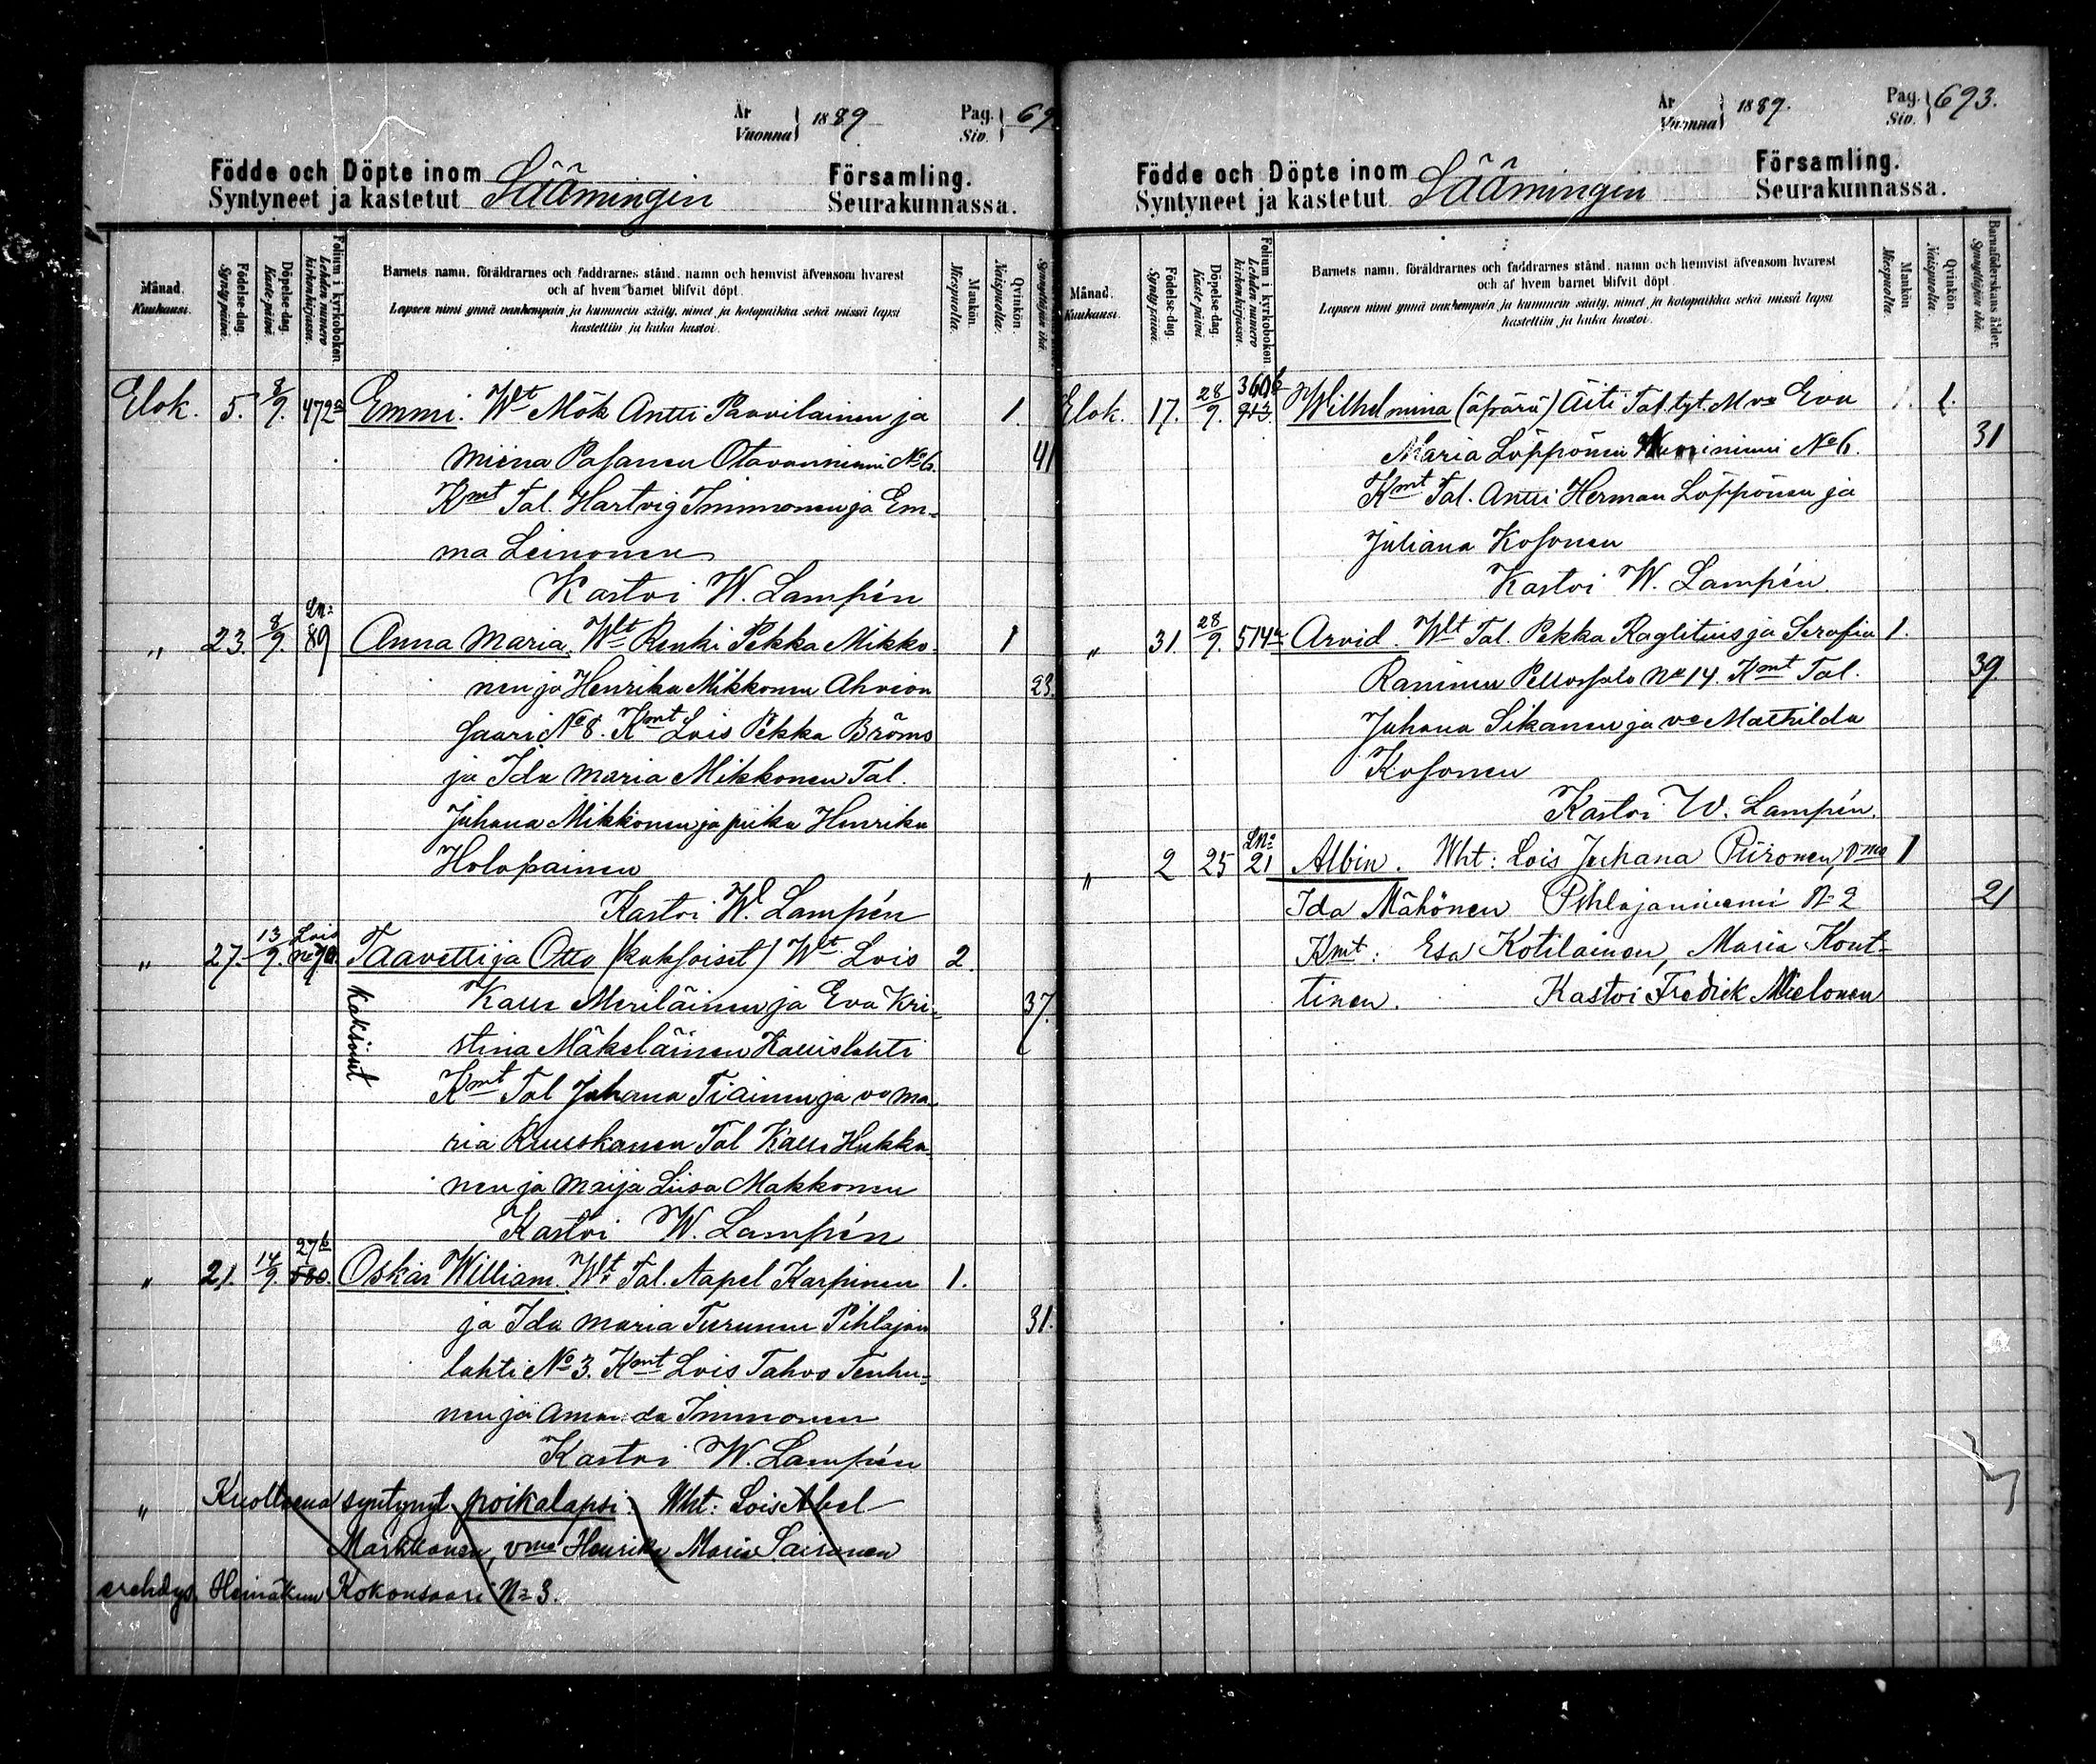 År
Vuonna} 1889
Pag.
Siv.} 69
Födde och Döpte inom
Syntyneet ja kastetut Säämingin
Församling.
Seurakunnassa.
Månad.
Kuukausi.
Födelse-dag.
Synty päivä.
Döpelse-dag.
Kaste päivä
Folium i kyrkoboken
Lehden numero kirkonkirjassa.
Barnets namn, föräldrarnes och faddrarnes stånd, namn och hemvist äfvensom hvarest
och af hvem barnet blifvit döpt.
Lapsen nimi ynnä vanhempain ja kummein sääty, nimet ja kotopaikka sekä missä lapsi
kastettiin ja kuka kastoi.
Mankön.
Miespuolta.
Qvinkön.
Naispuolta.
Synnyttäjän ikä.
Elok. 5. 8/9. 472a Emmi. Wt Mök Antti Paavilainen ja 1.
Miina Pasanen Otavanniemi No 6. 41
Kmt Tal. Hartvig Immonen ja Em-
ma Leinonen
Kastoi W. Lampén
Ln:
" 23. 8/9. 89 Anna Maria. Wt Renki Pekka Mikko- 1
nen ja Henrika Mikkonen Ahvion 23.
saari No 8. Kmt Lois Pekka Bröms
ja Ida Maria Mikkonen Tal.
Juhana Mikkonen ja piika Henrika
Holopainen
Kastoi W. Lampén
" 27. 13/9. Lois Taavetti ja Otto (kaksoiset) Wt Lois 2.
kaksoiset
Kalle Meriläinen ja Eva Kri- 37.
stina Mäkeläinen Kallislahti
Kmt Tal Juhana Tiainen ja vo Ma-
ria Ruuskanen Tal Kalle Hukka-
nen ja Maija Liisa Makkonen
Kastoi W. Lampén
27b
" 21. 14/9 580. Oskar William. Wt Tal. Aapel Karpinen 1.
ja Ida Maria Turunen Pihlajan 31.
lahti No 3. Kmt Lois Tahvo Tenhu-
nen ja Amanda Immonen
Kastoi W. Lampén
" Kuolleena syntynyt poikalapsi: Wht: Lois Abel
Markkanen, vmo Henrika Maria Sairanen
erehdys. Heinäkuu Kokonsaari No 3.
År
Vuonna} 1889.
Pag.
Siv.} 693.
Födde och Döpte inom
Syntyneet ja kastetut Säämingin
Församling.
Seurakunnassa.
Månad.
Kuukausi.
Födelse-dag.
Synty päivä.
Döpelse-dag.
Kaste päivä
Folium i kyrkoboken
Lehden numero kirkonkirjassa.
Barnets namn, föräldrarnes och faddrarnes stånd, namn och hemvist äfvensom hvarest
och af hvem barnet blifvit döpt.
Lapsen nimi ynnä vanhempain ja kummein sääty, nimet ja kotopaikka sekä missä lapsi
kastettiin ja kuka kastoi.
Mankön.
Miespuolta.
Qvinkön.
Naispuolta.
Barnaföderskans ålder.
Synnyttäjän ikä.
360b
Elok. 17. 28/9. Wilhelmina (äpärä) Äiti Tal. tyt. Eva 1.
Maria Löppönen No 6. 31
Kmt Tal. Antti Herman Löppönen ja
Juliana Kosonen
Kastoi W. Lampén.
" 31. 28/9. 514a Arvid. Wlt Tal. Pekka Raglitius ja Serafia 1.
Raninen Pellossalo No 14. Kmt Tal. 39
Juhana Sikanen ja vo Mathilda
Kosonen
Kastoi W. Lampén.
Ln:
" 2 25 21 Albin. Wht: Lois Juhana Piironen, vmo 1
Ida Mähönen Pihlajaniemi No 2 21
Kmt: Esa Kotilainen, Maria Kont-
tinen. Kastoi Fredrik Mielonen